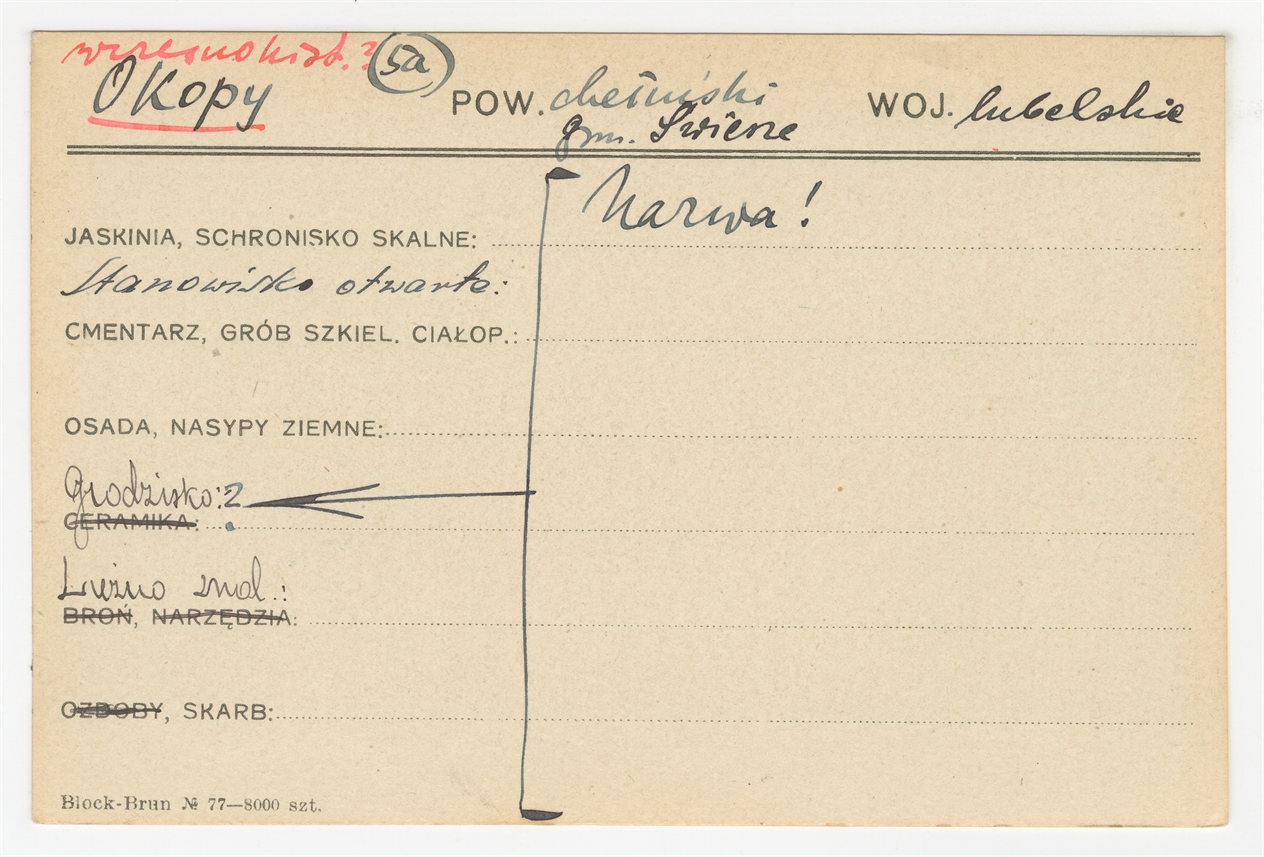 wczesnohist.? 5a
Okopy POW. chełmiński WOJ. lubelskie
gm. Świerże
Nazwa!
JASKINIA, SCHRONISKO SKALNE:
Stanowisko otwarte:
CMENTARZ, GRÓB SZKIEL. CIAŁOP.:
OSADA, NASYPY ZIEMNE:
Grodzisko: ?
CERAMIKA:
Luźno znal.:
BROŃ, NARZĘDZIA:
OZDOBY, SKARB:
Block-Brun № 77—8000 szt.